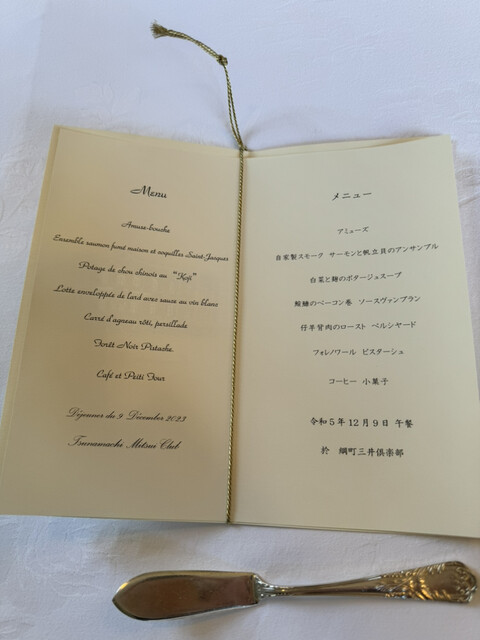 Menu
Amuse-bouche
Ensemble saumon fumé maison et coquilles Saint-Jacques
Potage de chou chinois au "Koji"
Lotte enveloppée de lard avec sauce au vin blanc
Carré d'agneau rôti, persillade
Forêt Noir Pistache.
Café et Petit Four
Déjeuner du 9 Décembre 2023
Tsunamachi Mitsui Club
メニュー
アミューズ
自家製スモーク サーモンと帆立貝のアンサンブル
白菜と麹のポタージュスープ
鮟鱇のベーコン巻 ソースヴァンブラン
仔羊背肉のロースト ペルシヤード
フォレノワール ピスターシュ
コーヒー 小菓子
令和5年12月9日 午餐
於 綱町三井倶楽部